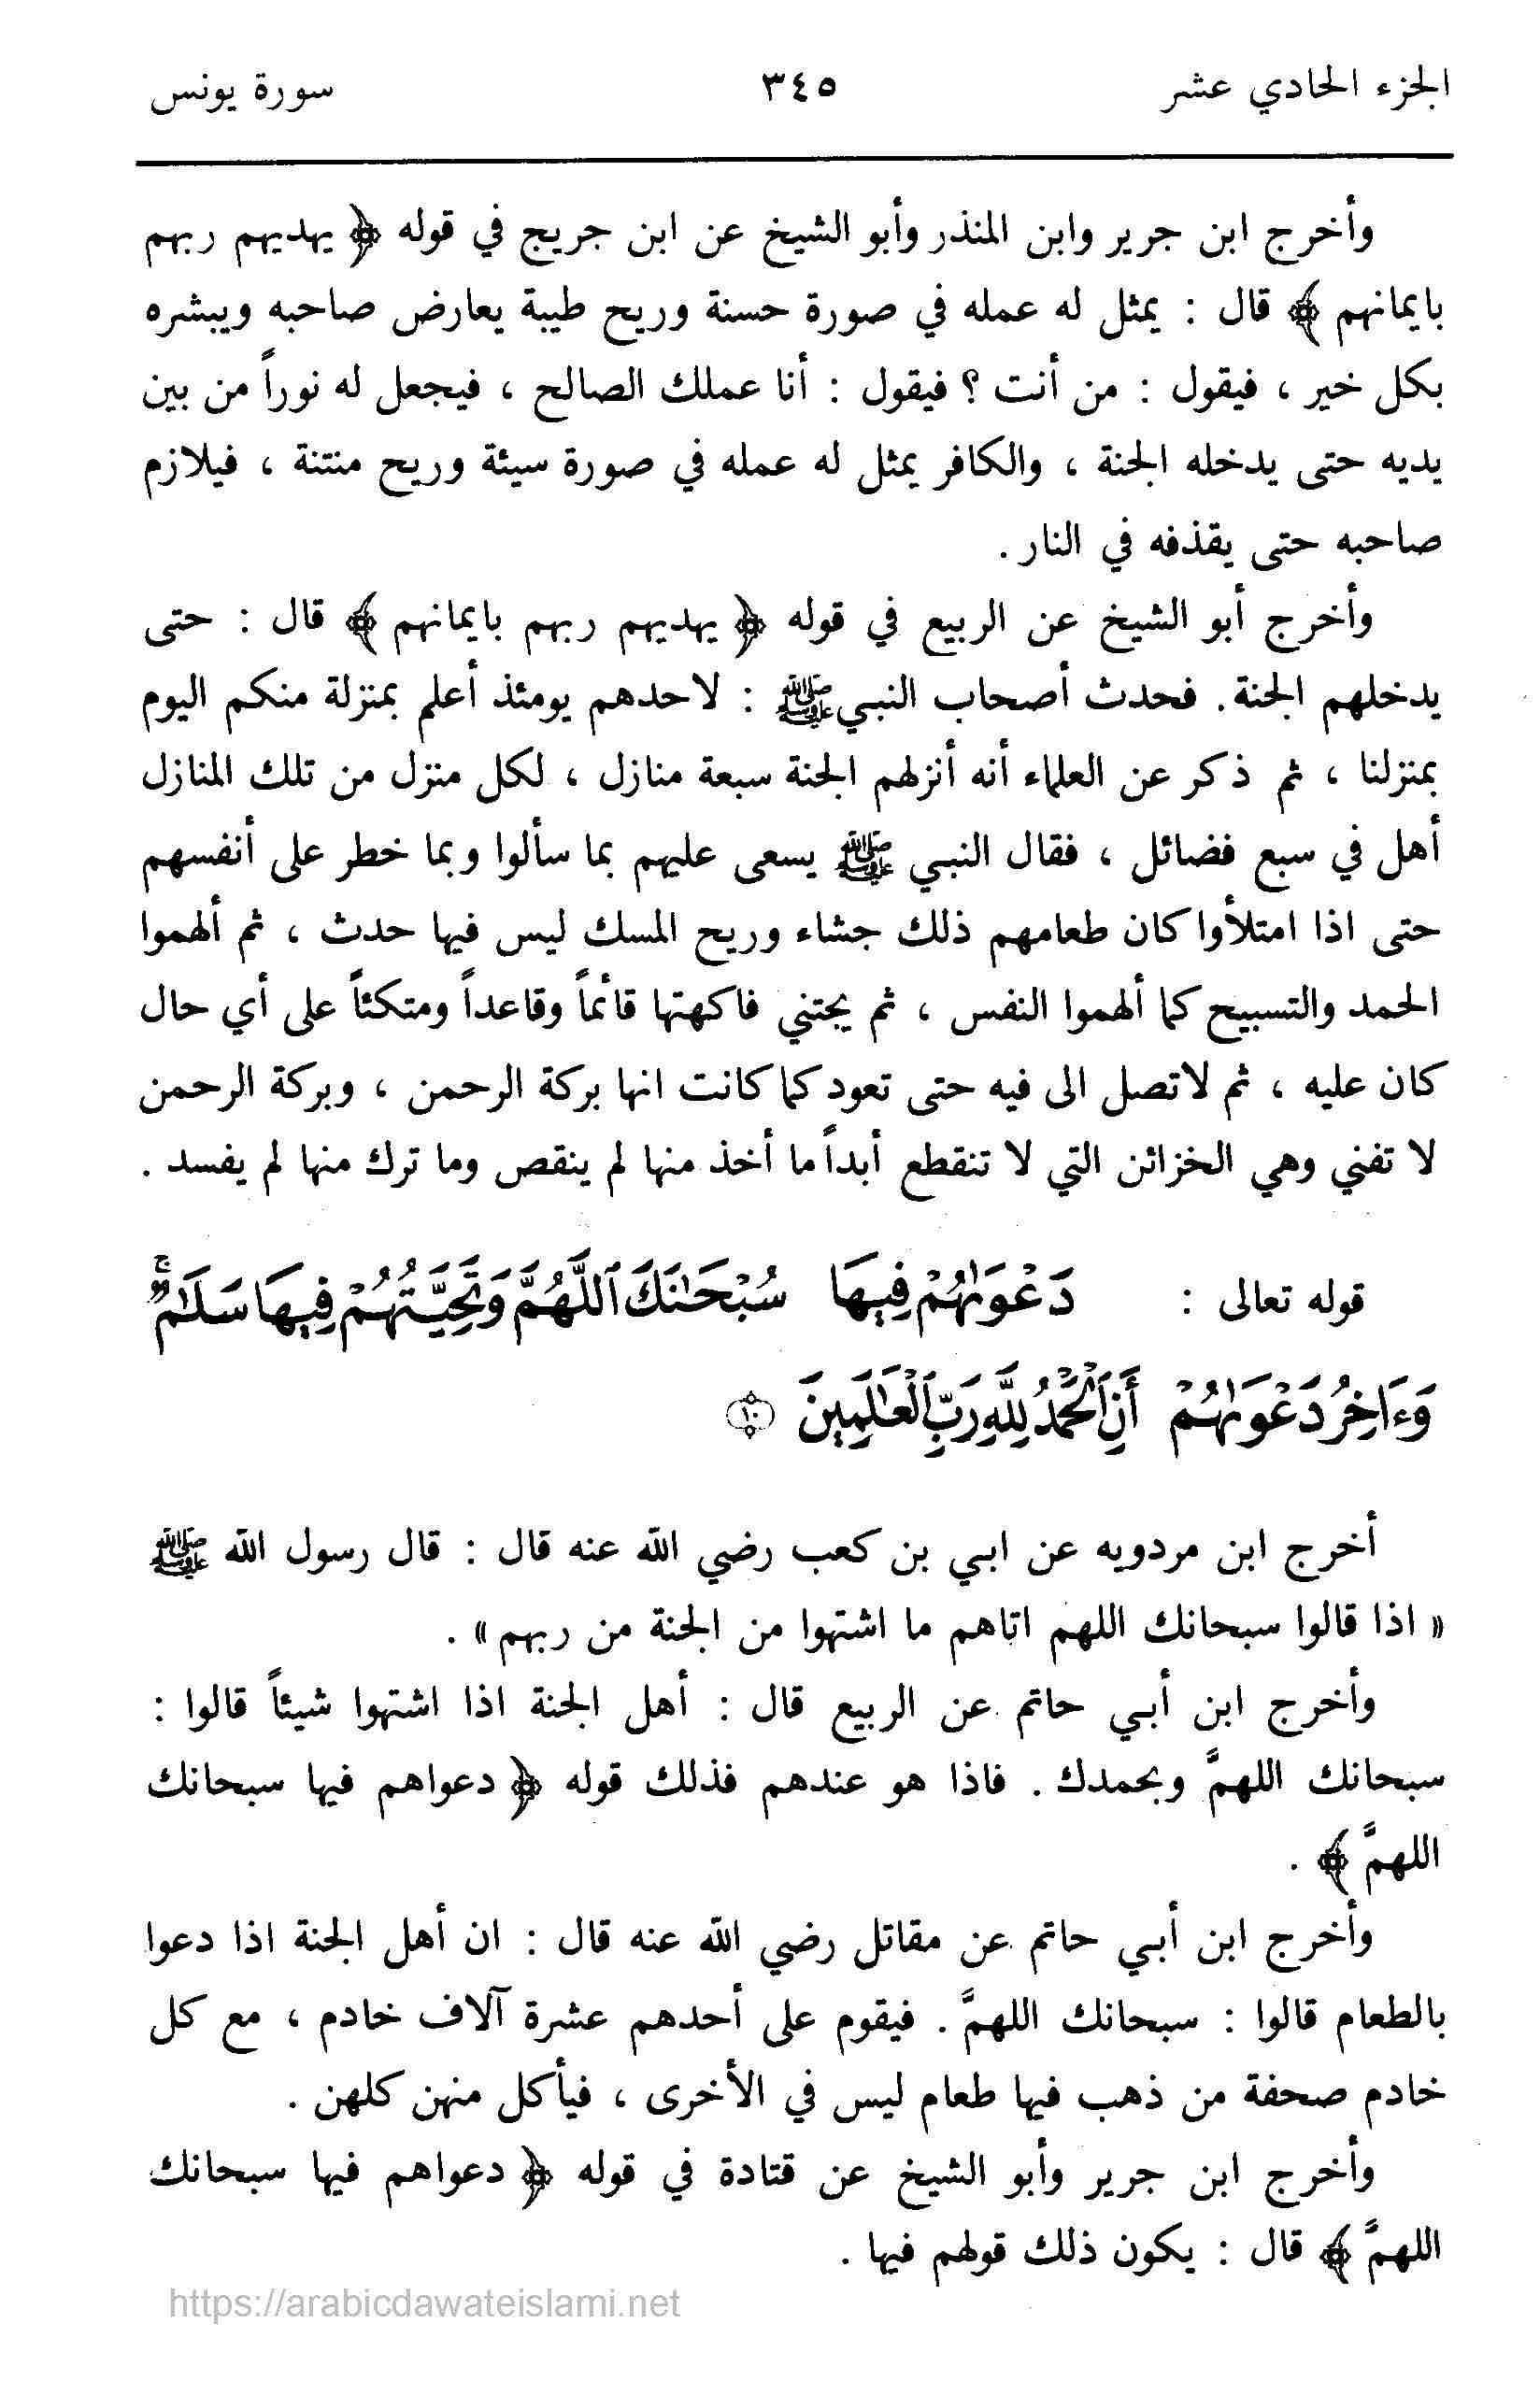 الجزء الحادي عشر ٣٤٥ سورة يونس
وأخرج ابن جرير وابن المنذر وأبو الشيخ عن ابن جريج في قوله ﴿ يهديهم ربهم
بايمانهم ﴾ قال : يمثل له عمله في صورة حسنة وريح طيبة يعارض صاحبه ويبشره
بكل خير ، فيقول : من أنت ؟ فيقول : أنا عملك الصالح ، فيجعل له نوراً من بين
يديه حتى يدخله الجنة ، والكافر يمثل له عمله في صورة سيئة وريح منتنة ، فيلازم
صاحبه حتى يقذفه في النار .
وأخرج أبو الشيخ عن الربيع في قوله ﴿ يهديهم ربهم بايمانهم ﴾ قال : حتى
يدخلهم الجنة . فحدث أصحاب النبي ﷺ : لاحدهم يومئذ أعلم بمنزلة منكم اليوم
بمنزلنا ، ثم ذكر عن العلماء أنه أنزلهم الجنة سبعة منازل ، لكل منزل من تلك المنازل
أهل في سبع فضائل ، فقال النبي ﷺ يسعى عليهم بما سألوا وبما خطر على أنفسهم
حتى اذا امتلأوا كان طعامهم ذلك جشاء وريح المسك ليس فيها حدث ، ثم ألهموا
الحمد والتسبيح كما ألهموا النفس ، ثم يجتني فاكهتها قائماً وقاعداً ومتكئاً على أي حال
كان عليه ، ثم لاتصل الى فيه حتى تعود كما كانت انها بركة الرحمن ، وبركة الرحمن
لا تفني وهي الخزائن التي لا تنقطع أبداً ما أخذ منها لم ينقص وما ترك منها لم يفسد .
قوله تعالى : دَعْوَىٰهُمْ فِيهَا سُبْحَٰنَكَ ٱللَّهُمَّ وَتَحِيَّتُهُمْ فِيهَا سَلَٰمٌ ۚ
وَءَاخِرُ دَعْوَىٰهُمْ أَنِ ٱلْحَمْدُ لِلَّهِ رَبِّ ٱلْعَٰلَمِينَ ١٠
أخرج ابن مردويه عن ابي بن كعب رضي الله عنه قال : قال رسول الله ﷺ
« اذا قالوا سبحانك اللهم اتاهم ما اشتهوا من الجنة من ربهم » .
وأخرج ابن أبي حاتم عن الربيع قال : أهل الجنة اذا اشتهوا شيئاً قالوا :
سبحانك اللهمَّ وبحمدك . فاذا هو عندهم فذلك قوله ﴿ دعواهم فيها سبحانك
اللهمَّ ﴾ .
وأخرج ابن أبي حاتم عن مقاتل رضي الله عنه قال : ان أهل الجنة اذا دعوا
بالطعام قالوا : سبحانك اللهمَّ . فيقوم على أحدهم عشرة آلاف خادم ، مع كل
خادم صحفة من ذهب فيها طعام ليس في الأخرى ، فيأكل منهن كلهن .
وأخرج ابن جرير وأبو الشيخ عن قتادة في قوله ﴿ دعواهم فيها سبحانك
اللهمَّ ﴾ قال : يكون ذلك قولهم فيها .
https://arabicdawateislami.net